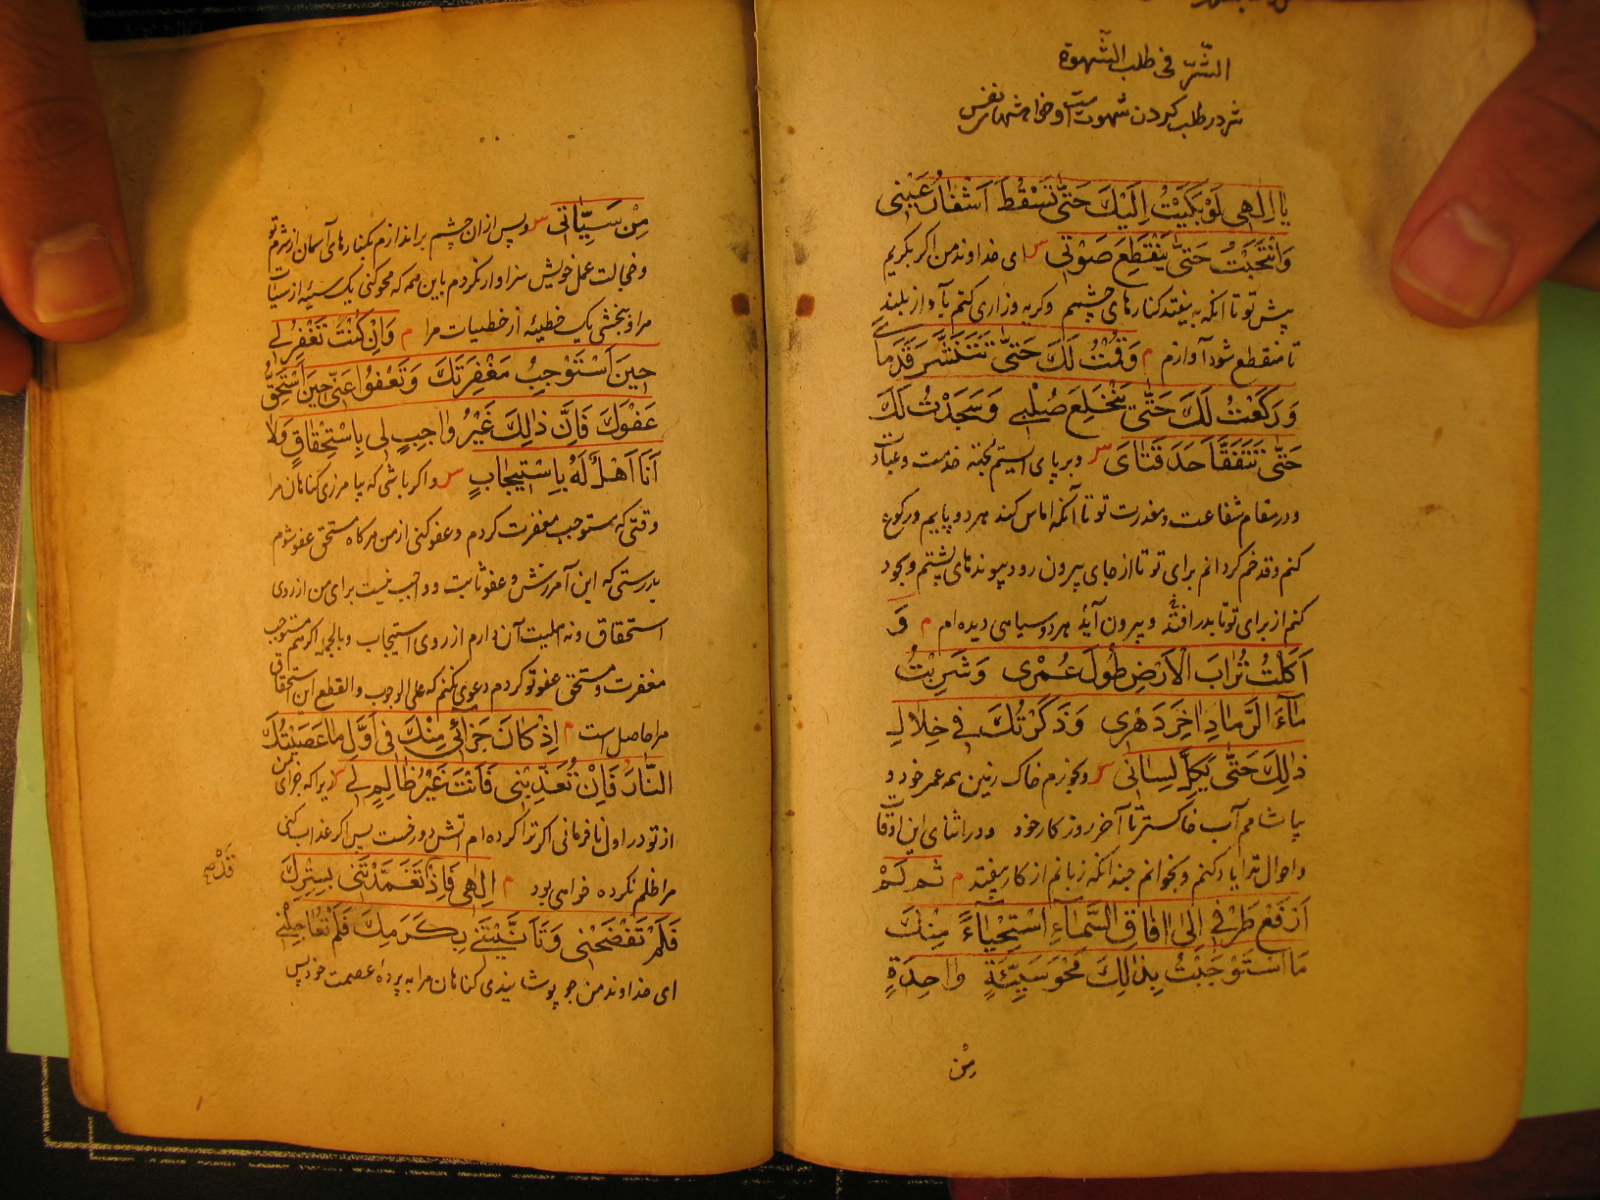 الشّرّ فی طلب الشّهوة
شر در طلب کردن شهوتست و خواهشهای نفس
یا اِلٰهی لَوْ بَکَیْتُ اِلَیْكَ حَتّٰی تَسْقُطَ اَشْفٰارُ عَیْنی
وَانْتَحَبْتُ حَتّٰی یَنْقَطِعَ صَوْتی س ای خداوند من اکر بکریم
پیش تو تا آنکه بیفتد کنارهای چشمم و کریه و زاری کنم بآواز بلند
تا منقطع شود آوازم م وَقُمْتُ لَكَ حَتّٰی تَتَنَشَّرَ قَدَمٰایَ
وَرَکَعْتُ لَكَ حَتّٰی یَنْخَلِعَ صُلْبی وَسَجَدْتُ لَكَ
حَتّٰی تَتَفَقَّأَ حَدَقَتٰایَ س و برپای ایستم بجهة خدمت و عبادت
و در مقام شفاعت و معذرت تو تا آنکه اماس کند هر دو پایم و رکوع
کنم و قد خم کردانم برای تو تا از جای بیرون رود پیوندهای پشتم و سجود
کنم از برای تو تا بدر افتد و بیرون آید هر دو سیاهی دیده ام م وَ
اَکَلْتُ تُرٰابَ الْاَرْضِ طُولَ عُمْری وَشَرِبْتُ
مٰآءَ الرَّمٰادِ اٰخِرَ دَهْری وَذَکَرْتُكَ فی خِلٰالِ
ذٰلِكَ حَتّٰی یَکِلَّ لِسٰانی س و بخورم خاک زمین همه عمر خود و
بیاشامم آب خاکستر تا آخر روز کار خود و در اثنای این اوقات
و احوال ترا یاد کنم و بخوانم چندانکه زبانم از کار بیفتد م ثُمَّ لَمْ
اَرْفَعْ طَرْفی اِلیٰ اٰفٰاقِ السَّمٰآءِ اسْتِحْیٰآءً مِنْكَ
مَا اسْتَوْجَبْتُ بِذٰلِكَ مَحْوَ سَیِّئَةٍ وٰاحِدَةٍ
مِنْ
مِنْ سَیِّئٰاتی س و پس از ان چشم براندازم بکنارهای آسمان از شرم تو
و خجالت عمل خویش سزاوار نکردم باین همه که محو کنی یک سیئه از سیئات
مرا و ببخشی یک خطیئه از خطیئات مرا م وَاِنْ کُنْتَ تَغْفِرُ لی
حینَ اَسْتَوْجِبُ مَغْفِرَتَكَ وَتَعْفُوا عَنّی حینَ اَسْتَحِقُّ
عَفْوَكَ فَاِنَّ ذٰلِكَ غَیْرُ وٰاجِبٍ لی بِاسْتِحْقٰاقٍ وَلٰا
اَنَا اَهْلٌ لَهُ بِاسْتیجٰابٍ س و اکر باشی که بیامرزی کناهان مرا
وقتی که مستوجب مغفرت کردم و عفو کنی از من هر کاه مستحق عفو شوم
بدرستی که این آمرزش و عفو ثابت و واجب نیست برای من از روی
استحقاق و نه اهلیت آن دارم از روی استیجاب و بالجمله اکر هم مستوجب
مغفرت و مستحق عفو تو کردم دعوی نکنم که علی الوجوب والقطع این استحقاق
مرا حاصل است م اِذْ کٰانَ جَزٰائی مِنْكَ فی اَوَّلِ مٰا عَصَیْتُكَ
النّٰارَ فَاِنْ تُعَذِّبْنی فَاَنْتَ غَیْرُ ظٰالِمٍ لی س زیرا که جزای من
از تو در اول نافرمانی اکر ترا کرده ام آتش دوزخست پس اکر عذاب کنی
مرا ظلم نکرده خواهی بود م اِلٰهی فَاِذْ تَغَمَّدْتَنی بِسِتْرِكَ
قَدْ
فَلَمْ تَفْضَحْنی وَتَاَنَّیْتَنی بِکَرَمِكَ فَلَمْ تُعٰاجِلْنی
ای خداوند من چو پوشانیدی کناهان مرا به پردهٔ عصمت خود پس